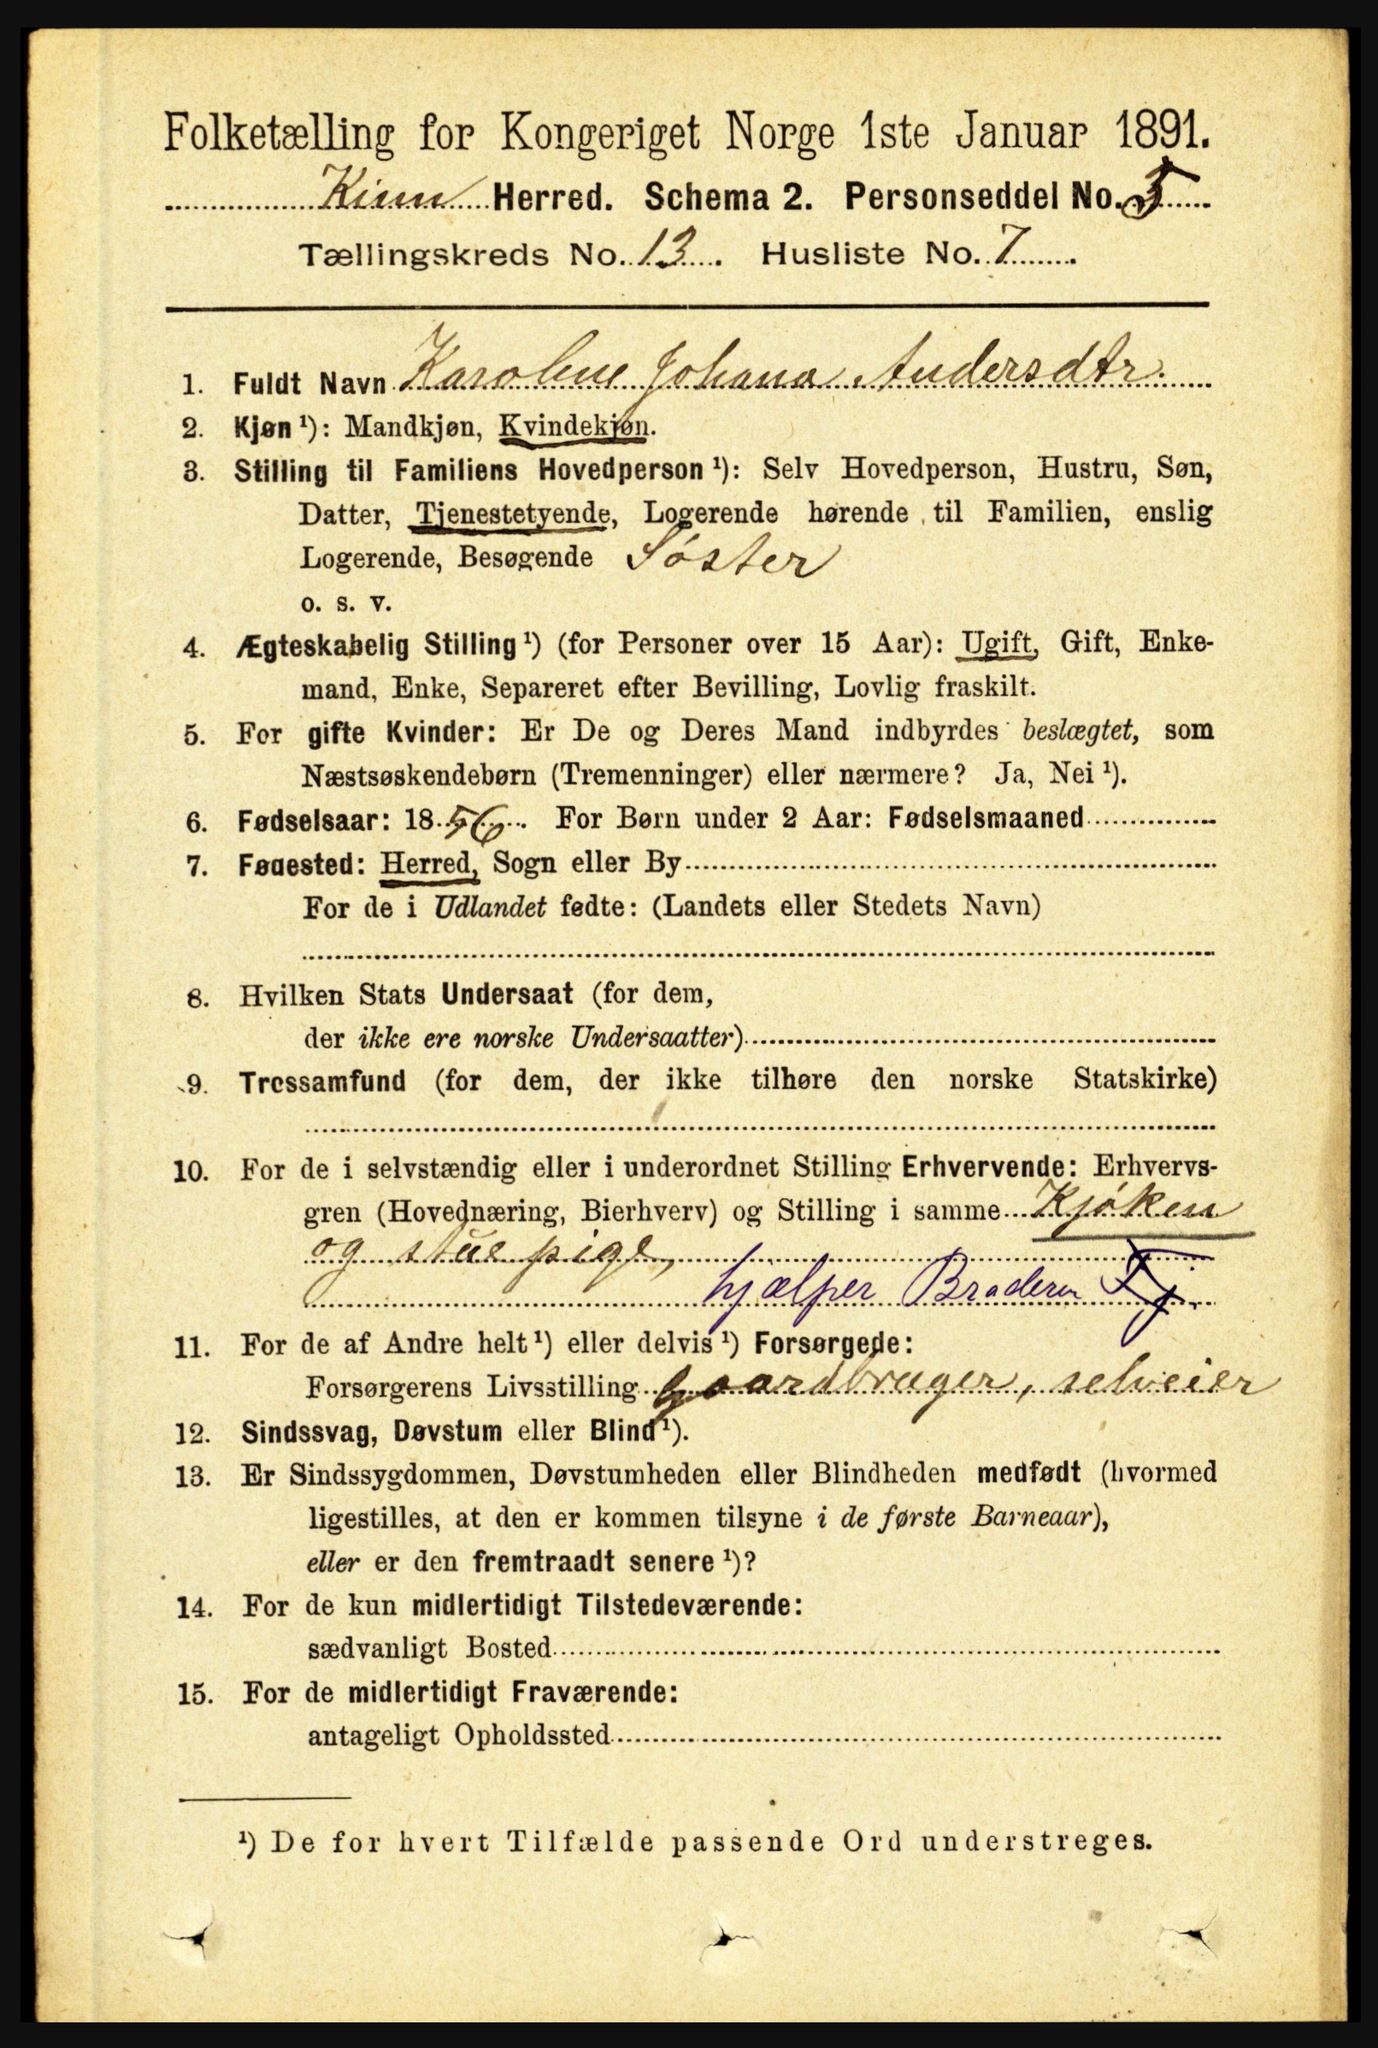 Folketælling for Kongeriget Norge 1ste Januar 1891.
Kinn Herred. Schema 2. Personseddel No. 5
Tællingskreds No. 13. Husliste No. 7
1. Fuldt Navn Karoline Johana Andersdtr.
2. Kjøn ¹): Mandkjøn, Kvindekjøn.
3. Stilling til Familiens Hovedperson ¹): Selv Hovedperson, Hustru, Søn,
Datter, Tjenestetyende, Logerende hørende til Familien, enslig
Logerende, Besøgende Søster
o. s. v.
4. Ægteskabelig Stilling ¹) (for Personer over 15 Aar): Ugift, Gift, Enke-
mand, Enke, Separeret efter Bevilling, Lovlig fraskilt.
5. For gifte Kvinder: Er De og Deres Mand indbyrdes beslægtet, som
Næstsøskendebørn (Tremenninger) eller nærmere? Ja, Nei ¹).
6. Fødselsaar: 1856. For Børn under 2 Aar: Fødselsmaaned
7. Fødested: Herred, Sogn eller By
For de i Udlandet fødte: (Landets eller Stedets Navn)
8. Hvilken Stats Undersaat (for dem,
der ikke ere norske Undersaatter)
9. Trossamfund (for dem, der ikke tilhøre den norske Statskirke)
10. For de i selvstændig eller i underordnet Stilling Erhvervende: Erhvervs-
gren (Hovednæring, Bierhverv) og Stilling i samme Kjøken
og stuepige,
hjælper Broderen Tj.
11. For de af Andre helt ¹) eller delvis ¹) Forsørgede:
Forsørgerens Livsstilling gaardbruger, selveier
12. Sindssvag, Døvstum eller Blind ¹).
13. Er Sindssygdommen, Døvstumheden eller Blindheden medfødt (hvormed
ligestilles, at den er kommen tilsyne i de første Barneaar),
eller er den fremtraadt senere ¹)?
14. For de kun midlertidigt Tilstedeværende:
sædvanligt Bosted
15. For de midlertidigt Fraværende:
antageligt Opholdssted
¹) De for hvert Tilfælde passende Ord understreges.